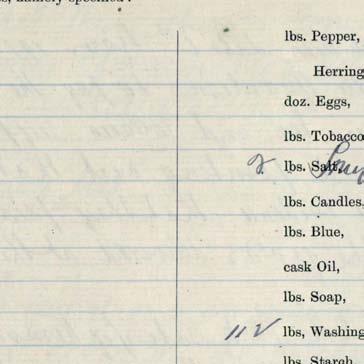 lbs. Pepper,
Herring
doz. Eggs,
lbs. Tobacco
lbs. Salt,
lbs. Candles,
lbs. Blue,
cask Oil,
lbs. Soap,
lbs, Washing
lbs. Starch